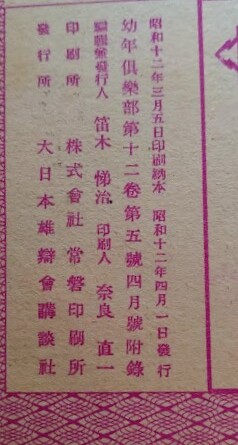 昭和十二年三月五日印刷納本 昭和十二年四月一日發行
幼年俱樂部第十二卷第五號四月號附錄
編輯兼發行人 笛木悌治 印刷人 奈良直一
印刷所 株式會社常磐印刷所
發行所 大日本雄辯會講談社